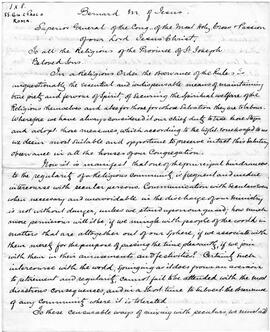 J. X. P.
SS. Gio. e Paolo
Roma
Bernard M. of Jesus.
Superior General of the Cong. of the Most Holy Cross & Passion
of our Lord Jesus Christ,
To all the Religious of the Province of St Joseph
Beloved Sons,
In a Religious Order the observance of the Rules is
unquestionably the essential and indispensable means of maintaining
true peace and fervor of Spirit, of securing the spiritual welfare of the
Religious themselves and also for those for whose Salvation they are to labour.
Wherefore we have always considered it our chief duty to use those steps
and adopt those measures, which according to the light vouchsafed to us
we deem most suitable and opportune to present intact this salutary
observance in all the houses of our Congregation.
Now it is manifest that one of the principal hindrances
to the regularity of a Religious Community, is frequent and undue
intercourse with secular persons. Communication with seculars when
necessary and unavoidable in the discharge of our ministry,
is not without danger, unless we attend upon our guard; how much
more pernicious will it be, if we mingle with people of the world in
matters that are altogether out of our sphere, if we associate with
them merely for the purpose of passing the time pleasantly, if we join
with them in their amusements and festivities! Certainly such
intercourse with the world, springing as it does from an aversion
to retirement and regularity cannot fail to be attended with the most
disastrous consequences, and in a short time to be the ruin
of any Community where it is tolerated.
To these censurable ways of mixing with seculars, we must add